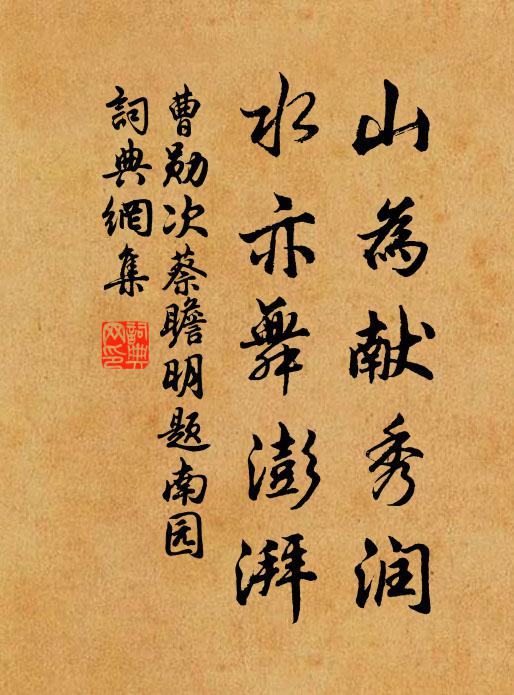 山為献秀润
水亦舞澎湃
曹勋次蔡瞻明题南园
詞典網集
詞典网印